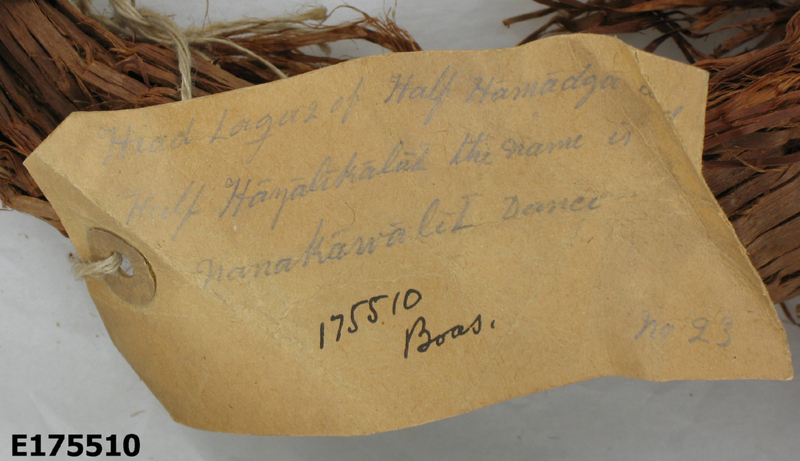 Head Lagaz of Half Hāmādga
Half Hāyālikālāł the name is
Nanakāwālił Dance
175510
Boas.
No 23
E175510